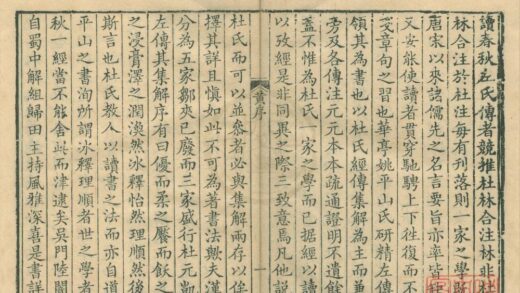 讀春秋左氏傳者競推杜林合注林非杜
林合注於杜注每有刊落則一家之學既
唐宋以來諸儒先之名言要旨亦率皆
又安能使讀者貫穿馳騁上下徃復而不
章句之習也華亭姚平山氏研精左傳
領其為書也以杜氏經傳集解為主而兼
旁及各傳注元元本本疏通證明不遺餘
蓋不惟為杜氏一家之學而已据經以讀
以攷經是非同異之際三致意焉凡他説
黄序
一
杜氏而可以並叅者必與集解兩存以俟
擇其詳且慎如此不可為著書法與夫漢
分為五家鄒夾已廢而三家盛行杜元凱
左傳其集解序有曰優而柔之饜而飫之
之浸膏澤之潤渙然冰釋怡然理順然後
斯言也杜氏教人以讀書之法而亦自道
平山之書洵所謂冰釋理順者世之學者
秋一經當不能舍此而津逮矣吳門陸闇
自蜀中解組歸田主持風雅深喜是書詳